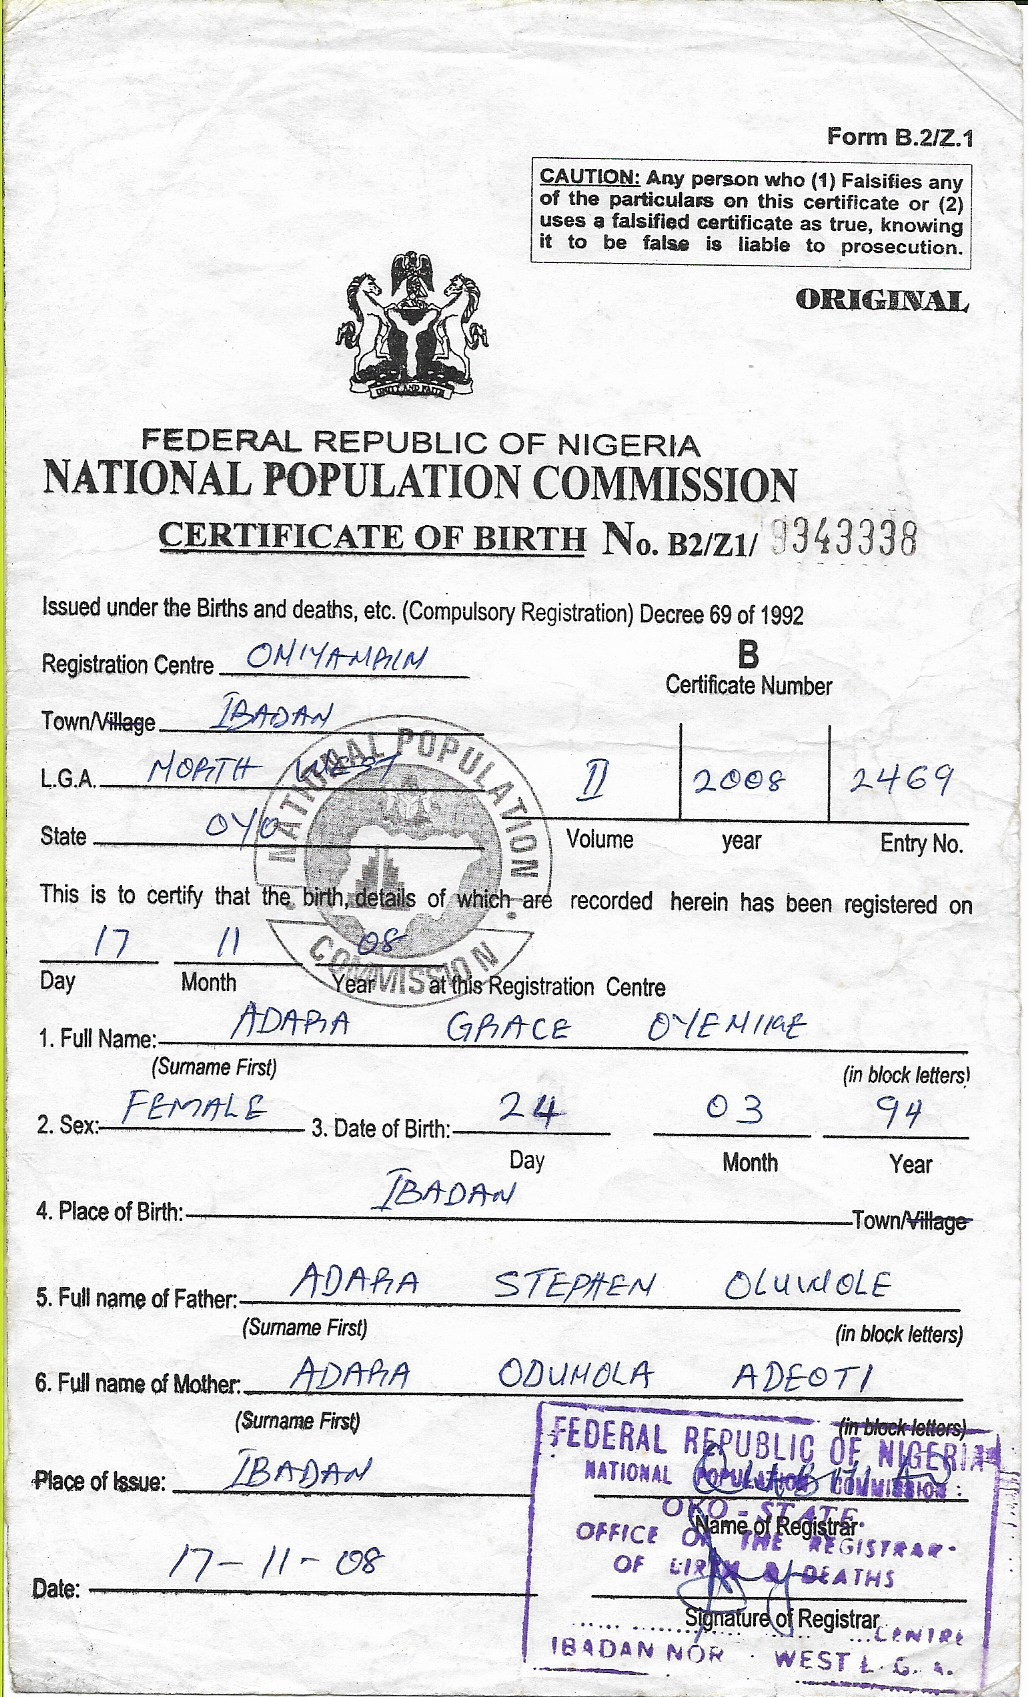 Form B.2/Z.1
CAUTION: Any person who (1) Falsifies any
of the particulars on this certificate or (2)
uses a falsified certificate as true, knowing
it to be false is liable to prosecution.
ORIGINAL
UNITY AND FAITH
FEDERAL REPUBLIC OF NIGERIA
NATIONAL POPULATION COMMISSION
CERTIFICATE OF BIRTH No. B2/Z1/ 9343338
Issued under the Births and deaths, etc. (Compulsory Registration) Decree 69 of 1992
Registration Centre ONIYANRIN
B
Certificate Number
Town/Village IBADAN
L.G.A. NORTH WEST
II 2008 2469
State OYO
Volume year Entry No.
NATIONAL POPULATION COMMISSION
This is to certify that the birth, details of which are recorded herein has been registered on
17 11 08
Day Month Year at this Registration Centre
1. Full Name: ADARA GRACE OYENIKE
(Surname First) (in block letters)
2. Sex: FEMALE 3. Date of Birth: 24 03 94
Day Month Year
4. Place of Birth: IBADAN Town/Village
5. Full name of Father: ADARA STEPHEN OLUWOLE
(Surname First) (in block letters)
6. Full name of Mother: ADARA ODUNOLA ADEOTI
(Surname First) (in block letters)
FEDERAL REPUBLIC OF NIGERIA
NATIONAL POPULATION COMMISSION
Place of Issue: IBADAN
OYO - STATE
Name of Registrar
OFFICE OF THE REGISTRAR
OF BIRTH & DEATHS
Date: 17-11-08
Signature of Registrar
CENTRE
IBADAN NOR WEST L.G.A.